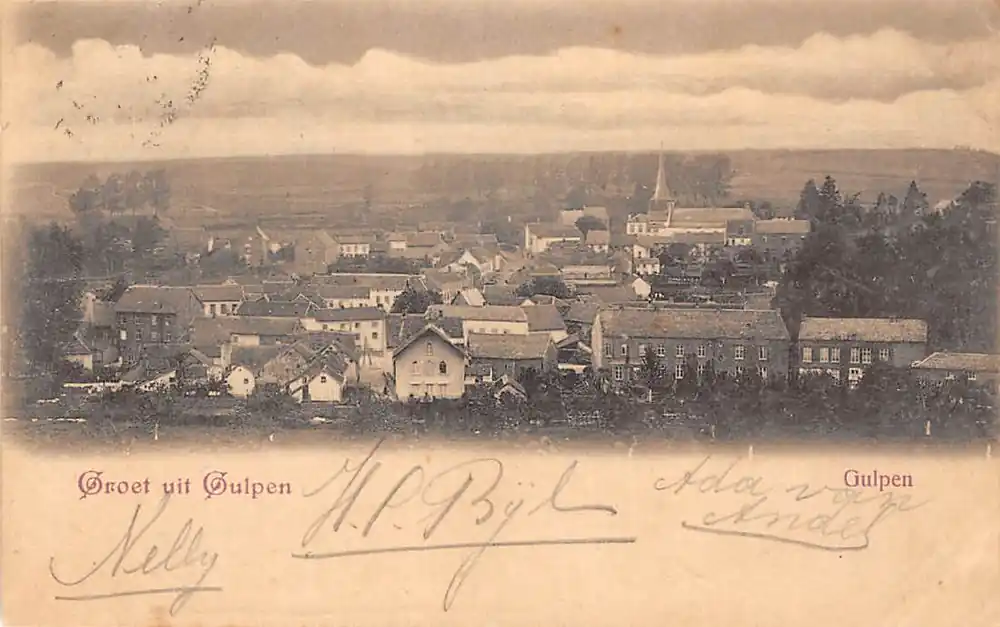 Groet uit Gulpen
Gulpen
H. P. Bÿl
Ada van
Andel
Nelly